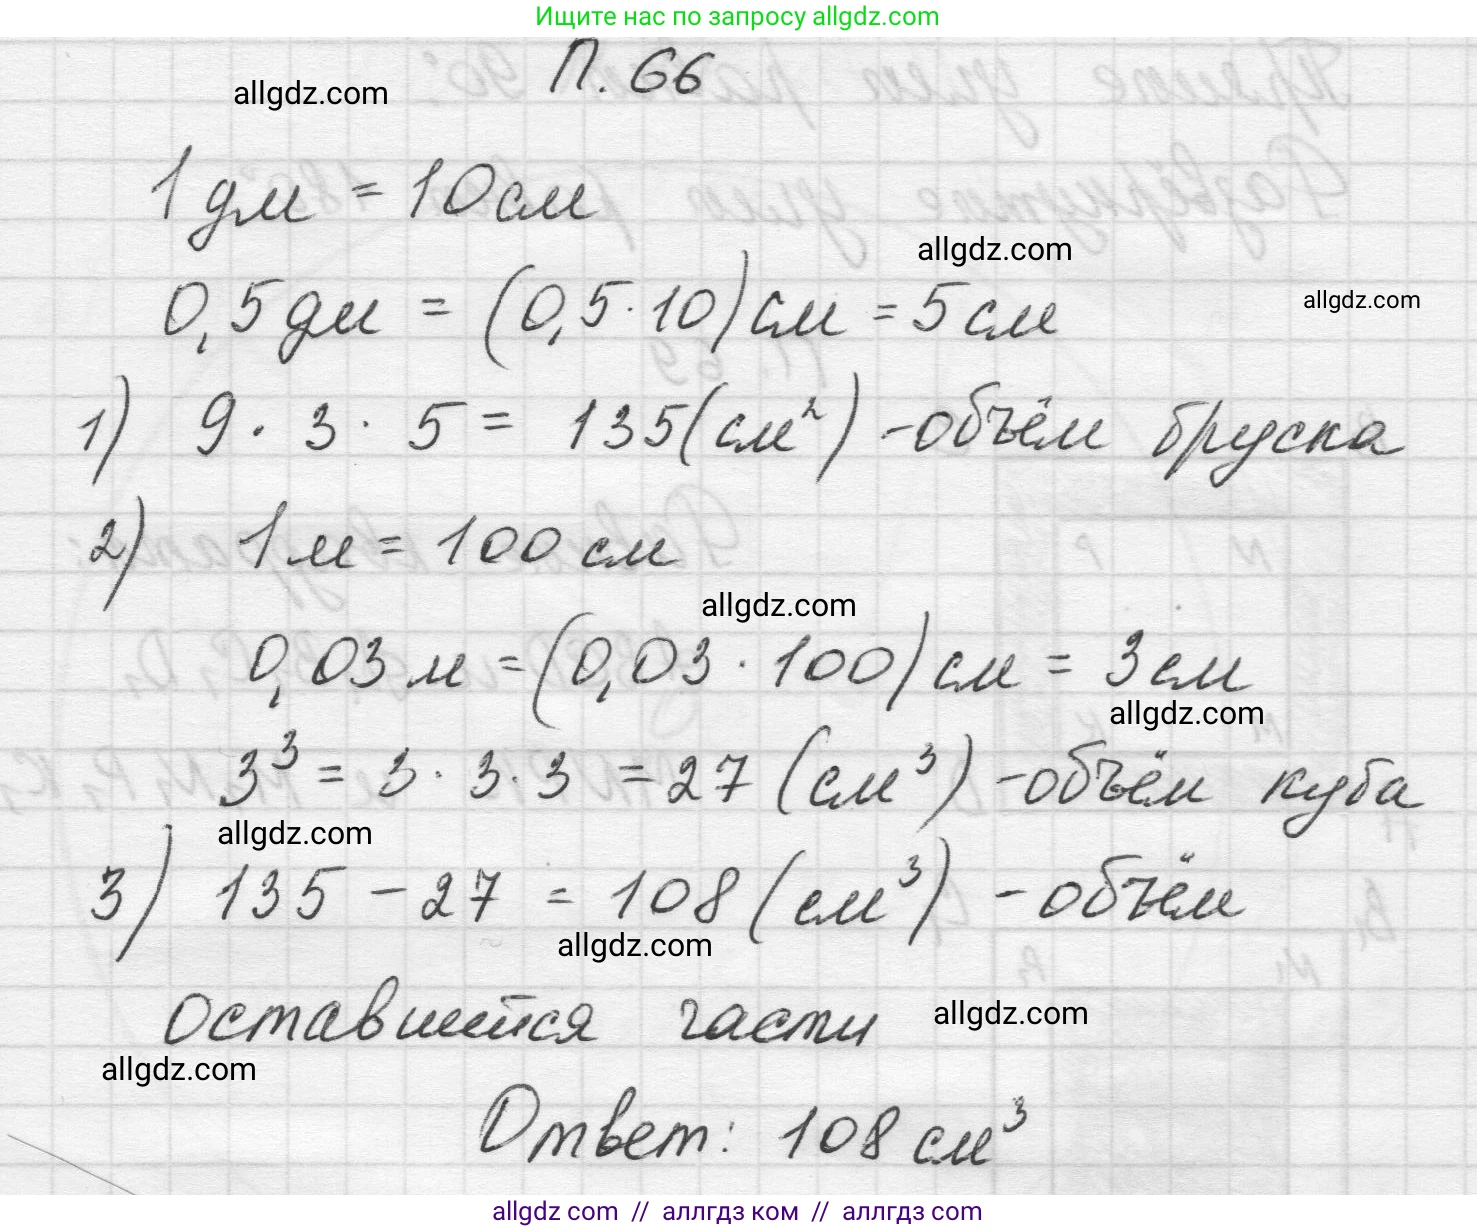 Ищите нас по запросу allgdz.com
П. 66
allgdz.com
1 дм = 10 см
allgdz.com
allgdz.com
0,5 дм = (0,5 · 10) см = 5 см
1) 9 · 3 · 5 = 135 (см²) - объём бруска
2) 1 м = 100 см
allgdz.com
0,03 м = (0,03 · 100) см = 3 см
allgdz.com
3³ = 3 · 3 · 3 = 27 (см³) - объём куба
allgdz.com
3) 135 - 27 = 108 (см³) - объём
allgdz.com
оставшейся части
allgdz.com
allgdz.com
Ответ: 108 см³
allgdz.com // аллгдз ком // allgdz.com